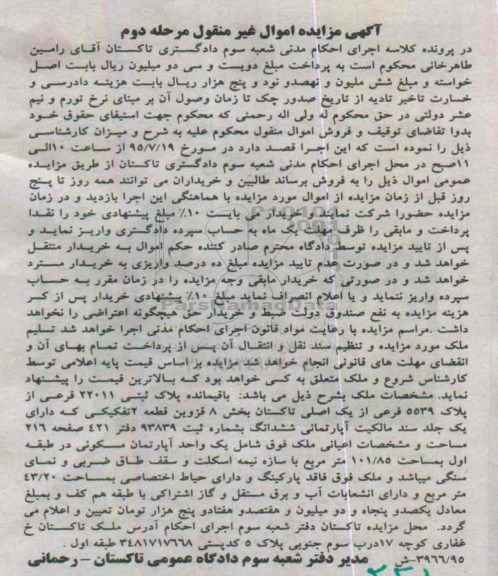 آگهی مزایده اموال غیر منقول مرحله دوم
در پرونده کلاسه اجرای احکام مدنی شعبه سوم دادگستری تاکستان آقای رامین
طاهرخانی محکوم است به پرداخت مبلغ دویست و سی دو میلیون ریال بابت اصل
خواسته و مبلغ شش ملیون و نهصدو نود و پنج هزار ریال بابت هزینه دادرسی و
خسارت تاخیر تادیه از تاریخ صدور چک تا زمان وصول آن بر مبنای نرخ تورم و نیم
عشر دولتی در حق محکوم له ولی اله رحمنی که محکوم جهت استیفای حقوق خود
بدوا تقاضای توقیف و فروش اموال منقول محکوم علیه به شرح و میزان کارشناسی
ذیل را نموده است که این اجرا قصد دارد در مورخ ۹۵/۷/۱۹ از ساعت ۱۰الی
۱۱صبح در محل اجرای احکام مدنی شعبه سوم دادگستری تاکستان از طریق مزایده
عمومی اموال ذیل را به فروش برساند طالبین و خریداران می توانند همه روز تا پنج
روز قبل از زمان مزایده از اموال مورد مزایده با هماهنگی این اجرا بازدید و در زمان
مزایده حضورا شرکت نمایند. خریدار می بایست ۱۰٪ مبلغ پیشنهادی خود را نقدا
پرداخت و مابقی را ظرف مهلت یک ماه به حساب سپرده دادگستری واریز نماید و
پس از تایید مزایده توسط دادگاه محترم صادر کننده حکم اموال به خریدار منتقل
خواهد شد و در صورت عدم تایید مزایده مبلغ ده درصد واریزی به خریدار مسترد
خواهد شد و در صورتی که خریدار مابقی وجه مزایده را در زمان مقرر به حساب
سپرده واریز ننماید و یا اعلام انصراف نماید مبلغ ۱۰٪ پیشنهادی خریدار پس از کسر
هزینه مزایده به نفع صندوق دولت ضبط و خریدار حق هیچگونه اعتراضی را نخواهد
داشت .مراسم مزایده با رعایت مواد قانون اجرای احکام مدنی اجرا خواهد شد تسلیم
ملک مورد مزایده و تنظیم سند نقل و انتقال آن پس از پرداخت تمام بهای آن و
انقضای مهلت های قانونی انجام خواهد شد مزایده بر اساس قیمت پایه اعلامی توسط
کارشناس شروع و ملک متعلق به کسی خواهد بود که بالاترین قیمت را پیشنهاد
نماید. مشخصات ملک بشرح ذیل می باشد: باقیمانده پلاک ثبتی ۲۲۰۱۱ فرعی از
پلاک ۵۵۳۹ فرعی از یک اصلی تاکستان بخش ۸ قزوین قطعه ۲تفکیکی که دارای
یک جلد سند مالکیت آپارتمانی ششدانگ بشماره ثبت ۹۳۸۳۹ دفتر ۴۲۱ صفحه ۲۱۶
مساحت و مشخصات اعیانی ملک فوق شامل یک واحد آپارتمان مسکونی در طبقه
اول بمساحت ۱۰۱/۸۵ متر مربع با سازه نیمه اسکلت و سقف طاق ضربی و نمای
سنگی میباشد و ملک فوق فاقد پارکینگ و دارای حیاط اختصاصی بمساحت ۴۳/۲۰
متر مربع و دارای انشعابات آب و برق مستقل و گاز اشتراکی با طبقه هم کف و بمبلغ
معادل یکصدو پنجاه و دو میلیون و هفتصدو هفتادو پنج هزار تومان تعیین و اعلام می
گردد. محل مزایده تاکستان دفتر شعبه سوم اجرای احکام آدرس ملک تاکستان خ
غفاری کوچه ۱۷درب سوم جنوبی پلاک ۵ کدپستی ۳۴۸۱۷۱۷۶۶۸ طبقه اول .
۳۹۶۶/۹۵-ش مدیر دفتر شعبه سوم دادگاه عمومی تاکستان – رحمانی